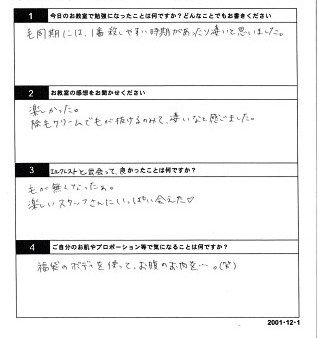 1 今日のお教室で勉強になったことは何ですか?どんなことでもお書きください
毛周期には、1番殺しやすい時期があったり凄いと思いました。
2 お教室の感想をお聞かせください
楽しかった。
除毛クリームでも毛が抜けるのみて、凄いなと感じました。
3 エルクレストと出会って、良かったことは何ですか?
毛が無くなったぁ。
楽しいスタッフさんにいっぱい会えた♡
4 ご自分のお肌やプロポーション等で気になることは何ですか?
福袋のボディを使って、お腹のお肉を…。(笑)
2001-12-1